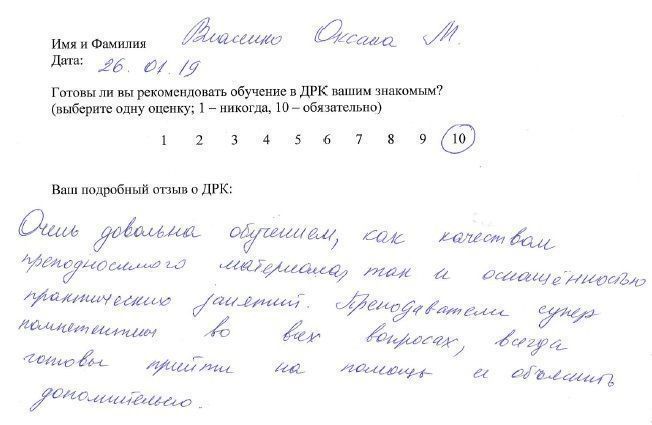 Имя и Фамилия Власенко Оксана М.
Дата: 26.01.19
Готовы ли вы рекомендовать обучение в ДРК вашим знакомым?
(выберите одну оценку; 1 – никогда, 10 – обязательно)
1 2 3 4 5 6 7 8 9 10
Ваш подробный отзыв о ДРК:
Очень довольна обучением, как качеством
преподносимого материала, так и оснащённостью
практических занятий. Преподаватели супер
компетентны во всех вопросах, всегда
готовы прийти на помощь и объяснить
дополнительно.